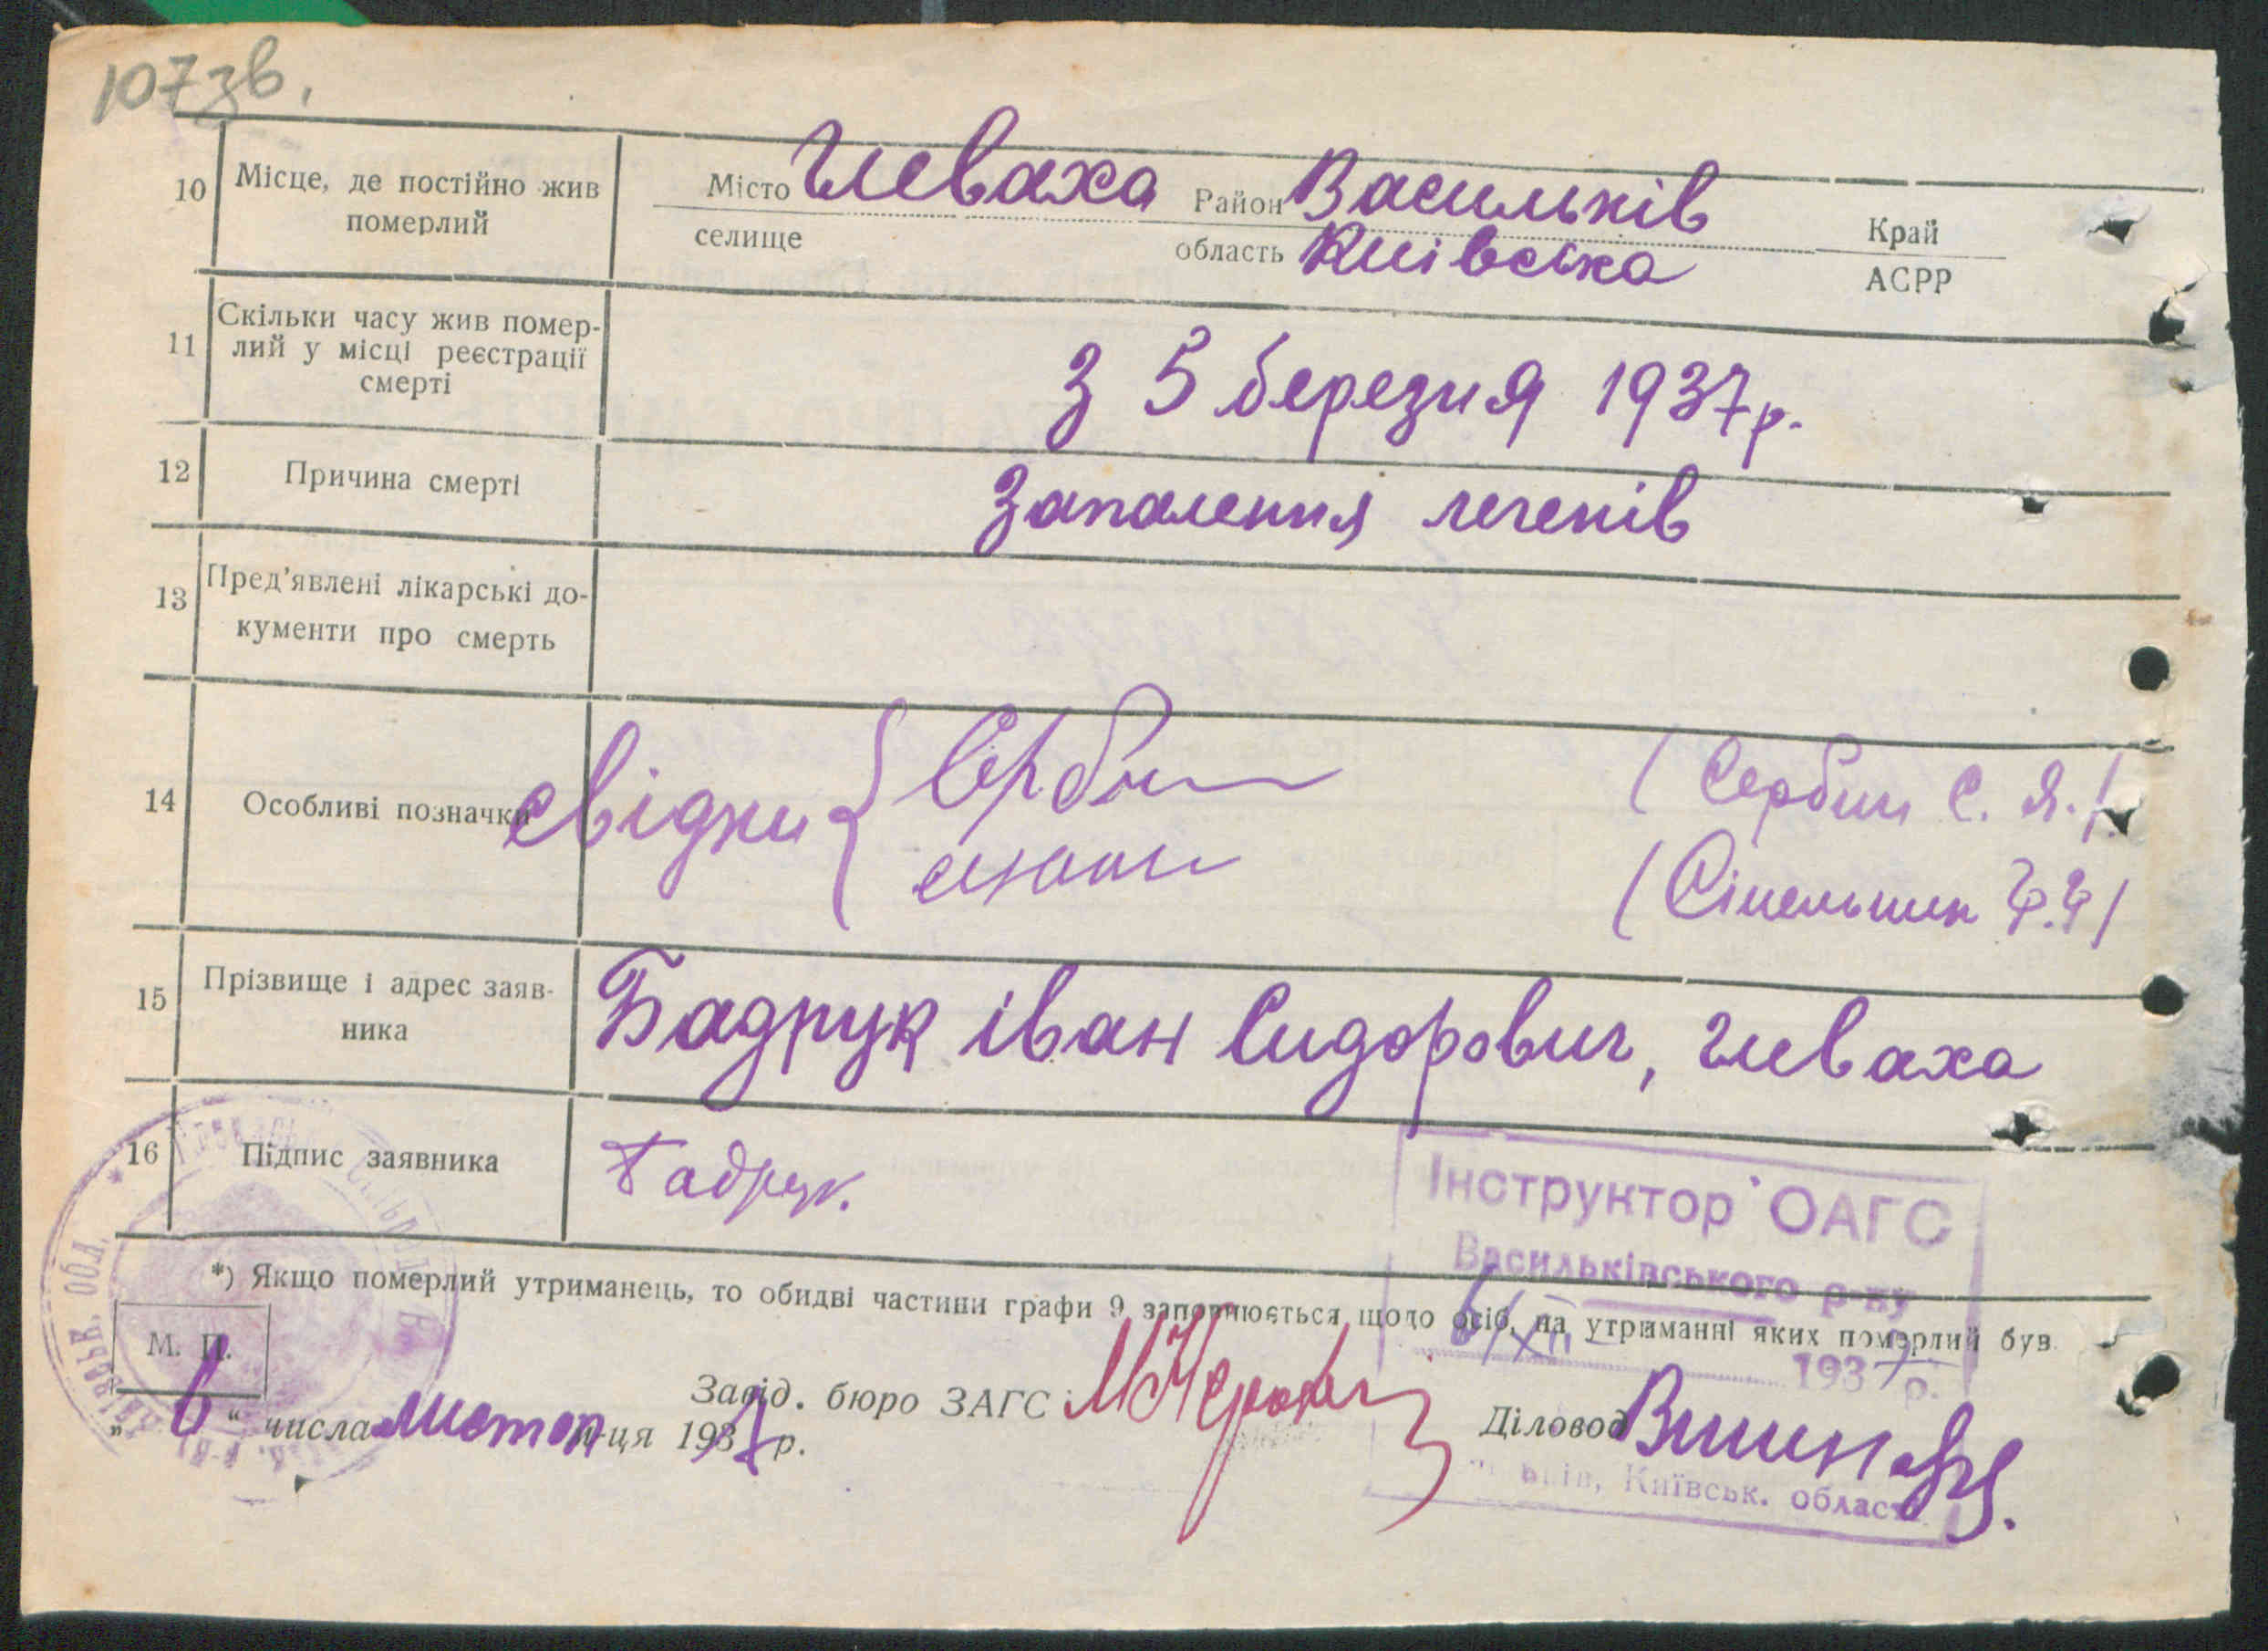 107зв.
10 Місце, де постійно жив
померлий
Місто Глеваха Район Васильків Край
селище область Київська АСРР
11 Скільки часу жив помер-
лий у місці реєстрації
смерті
З 5 березня 1937 р.
12 Причина смерті Запалення легенів
13 Пред'явлені лікарські до-
кументи про смерть
14 Особливі позначки свідки { Сербин (Сербин С. Я.)
(Сінельник
15 Прізвище і адрес заяв-
ника
Бадрук іван Сидорович, Глеваха
16 Підпис заявника Бадрук.
Інструктор ОАГС
Васильківського р-ну
6/XII 1937 р.
Київськ. област
*) Якщо померлий утриманець, то обидві частини графи 9 заповнюється щодо осіб, на утриманні яких померлий був.
М. П.
Завід. бюро ЗАГС Діловод
„6“ числа листоп м-ця 1937 р.
Київськ. обл.